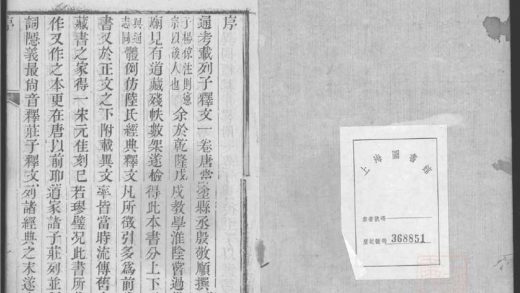 序
通考載列子釋文一卷唐當塗縣丞殷敬順撰
余於乾隆戊戌教學淮陰嘗過
廟見有道藏殘帙數架遂檢得此本書分上下
與通志同體例仿陸氏經典釋文凡所徵引多為前
書又於正文之下附載異文率皆當時流傳舊
藏書之家得一宋元佳刻已若璆璧況此書所
作又作之本更在唐以前耶道家諸子莊列並
詞隱義最尙音釋莊子釋文列諸經典之末遂
序
上海圖書館
索書號碼
登記號碼 368851